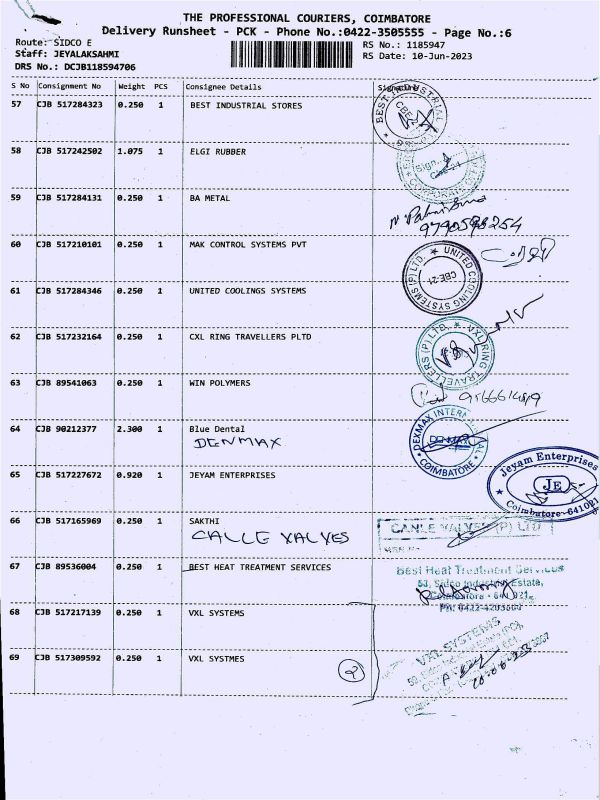 THE PROFESSIONAL COURIERS, COIMBATORE
Delivery Runsheet - PCK - Phone No.:0422-3505555 - Page No.:6
Route: SIDCO E
RS No.: 1185947
Staff: JEYALAKSAHMI
RS Date: 10-Jun-2023
DRS No.: DCJB118594706
S No Consignment No Weight PCS Consignee Details Signature
57 CJB 517284323 0.250 1 BEST INDUSTRIAL STORES
BEST INDUSTRIAL
CBE
58 CJB 517242502 1.075 1 ELGI RUBBER
Sign.
CBE-21
59 CJB 517284131 0.250 1 BA METAL
60 CJB 517210101 0.250 1 MAK CONTROL SYSTEMS PVT
61 CJB 517284346 0.250 1 UNITED COOLINGS SYSTEMS
UNITED COOLING SYSTEMS (P) LTD.
CBE-21
62 CJB 517232164 0.250 1 CXL RING TRAVELLERS PLTD
VXL RING TRAVELLERS (P) LTD.
63 CJB 89541063 0.250 1 WIN POLYMERS
64 CJB 90212377 2.300 1 Blue Dental
DENMAX
DEXMAX INTERNATIONAL
DENMAX
COIMBATORE
65 CJB 517227672 0.920 1 JEYAM ENTERPRISES
Jeyam Enterprises
JE
Coimbatore-641021
66 CJB 517165969 0.250 1 SAKTHI
CALLE VALVES
VALVES (P) LTD
67 CJB 89536004 0.250 1 BEST HEAT TREATMENT SERVICES
Best Heat Treatment Services
53, Sidco Industrial Estate,
Coimbatore - 641 021.
PH: 0422-4203660
68 CJB 517217139 0.250 1 VXL SYSTEMS
69 CJB 517309592 0.250 1 VXL SYSTMES
2
VXL SYSTEMS